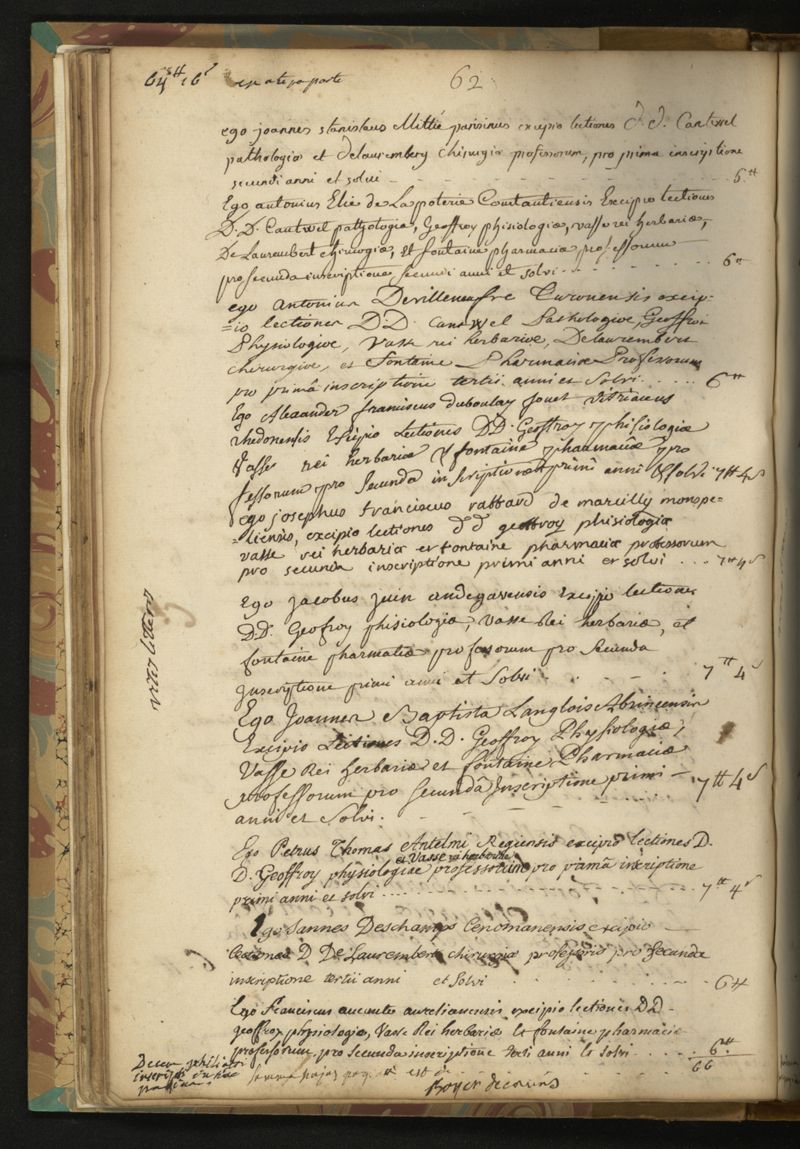 64ᵗᵗ 16ˢ ex altera parte
62
ego joannes stanislaus Mittié parisinus excipio lectiones d. d. Cantwel
pathologiæ et delaurembery chirurgiæ professorum, pro prima inscriptione
secundi anni et solvi - - - 6.ᵗᵗ
Ego antonius Elie de Lapoterie Constantiensis Excipio lectiones
D.D. Cantwel pathologiæ, Geoffroy phisiologiæ, vasse rei herbariæ,
De Laurembert chirurgiæ, et fontaine pharmaciæ professorum
pro secunda inscriptione, secundi anni et solvi - - - 6ᵗᵗ
ego Antonius Devilleneufve Turonensis excip=
=io lectiones D.D. Cantwel Pathologiæ, Geoffroi
Physiologiæ, Vasse rei herbariæ, Delaurembert
chirurgiæ, et Fontaine Pharmaciæ Professorum
pro primâ inscriptione tertii anni et Solvi . . . . . 6ᵗᵗ
Ego Alexander franciscus duboulay jouet vitriacus
rhedonensis Excipio Lectiones D.D. Geoffroy phisiologiæ
Vasse rei herbariæ & fontaine pharmaciæ pro
fessorum pro Secunda inscriptione primi anni & solvi 7ᵗᵗ 4ˢ
ego josephus franciscus rabbard de marcilly monspe=
=liensis, excipio lectiones d d geoffroy phisiologiæ
vasse rei herbariæ et fontaine pharmaciæ professorum
pro secunda inscriptione primi anni et solvi . . . 7ᵗᵗ 4ˢ
Ego jacobus juin andegavensis Excipio lectiones
D.D. Geofroy phisiologiæ, Vasse Rei herbariæ, et
fontaine pharmatiæ professorum pro Secunda
inscriptione primi anni et Solvi - - - 7ᵗᵗ 4ˢ
Ego Joannes Baptista Langlois Abrincensis
Excipio Lectiones D.D. Geoffroy Physiologiæ,
Vasse Rei herbariæ et fontaine Pharmaciæ
professorum pro Secundâ Inscriptione primi
anni et Solvi. - - - 7ᵗᵗ 4ˢ
Ego Petrus Thomas Antelmi Regiensis excipio lectiones D.
et Vasse rei herbariæ
D. Geoffroy physiologiæ professorum pro primâ inscriptione
primi anni et solvi - - - 7ᵗᵗ 4ˢ
Ego Joannes Deschamps Cenomanensis excipio
lectiones D De Laurembert chirurgiæ professoris pro secunda
inscriptione tertii anni et Solvi - - - 6ᵗᵗ
Ego Franciscus aucante aurelianensis excipio lectiones D.D.
geoffroy physiologiæ, Vasse Rei herbariæ et fontaine pharmaciæ
professorum, pro secunda inscriptione tertii anni et solvi . . . . 6ᵗᵗ
66
Decem philiatri
inscripti in hac
pagina
Summa hujus pag. est
Boyer decanus